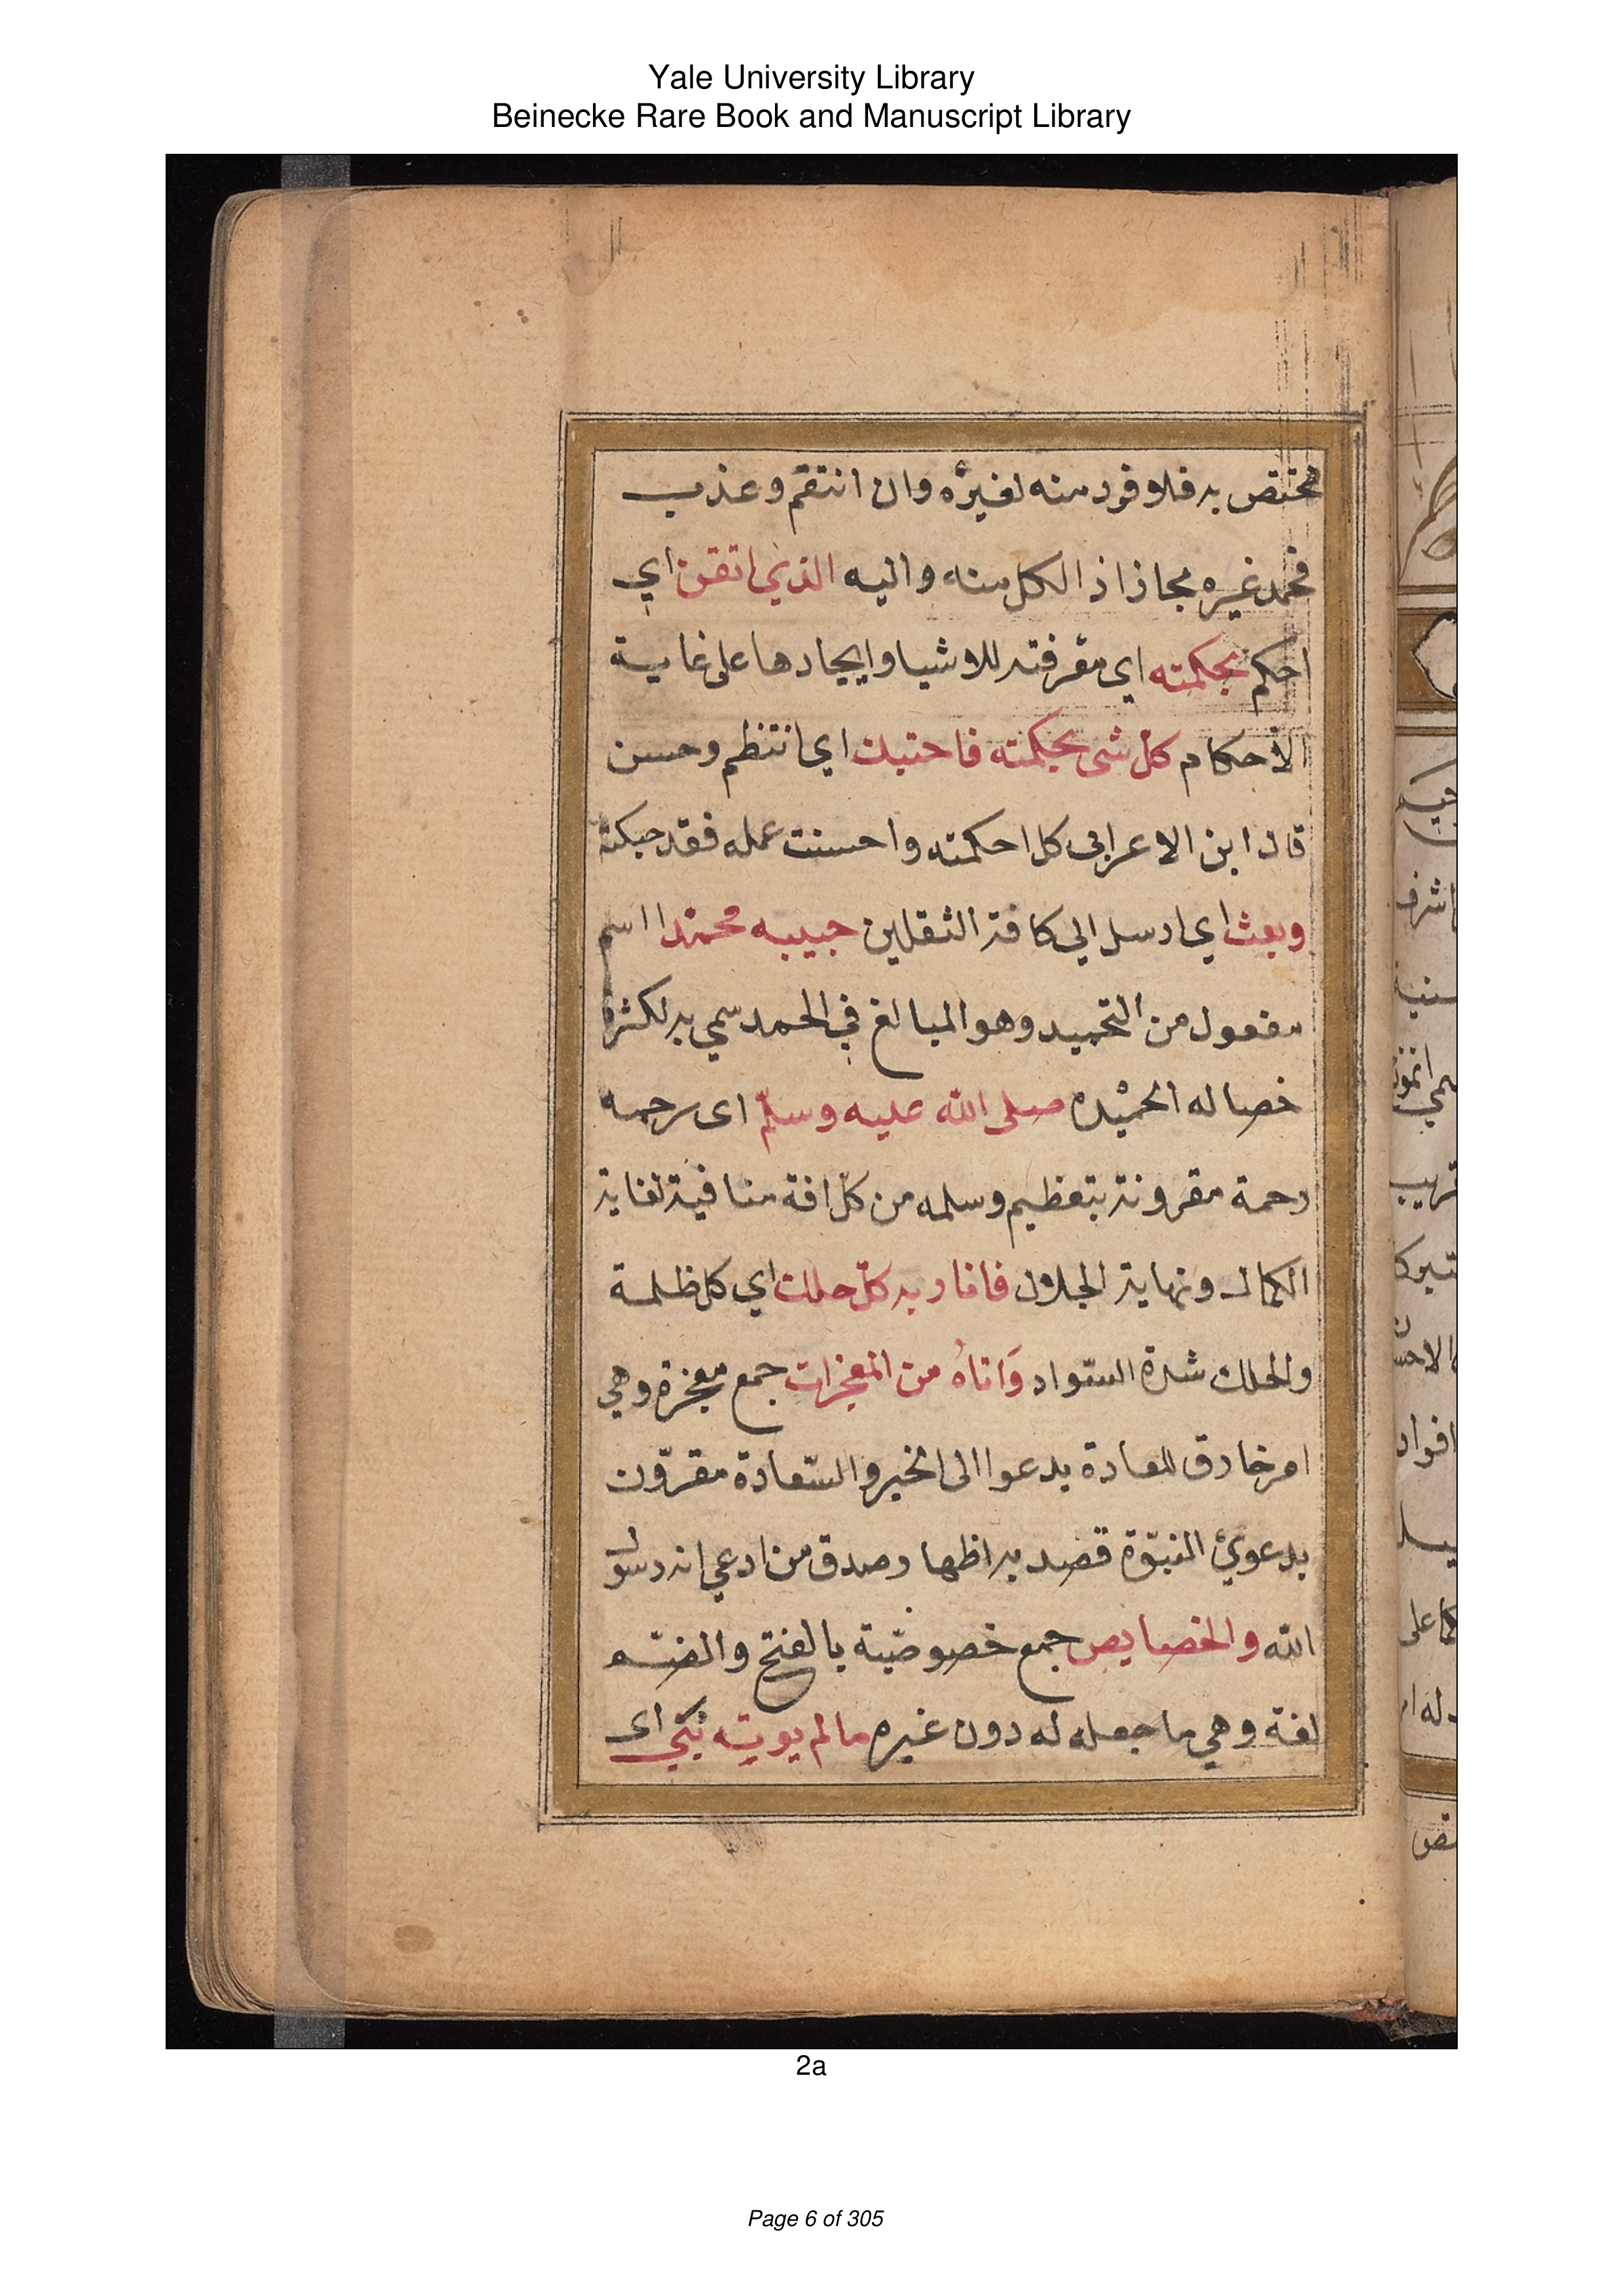 Yale University Library
Beinecke Rare Book and Manuscript Library
مختص به فلا فرد منه لغيره وان انتقم وعذب
فحمد غيره مجازا اذ الكل منه واليه الذي اتقن اي
احكم بحكمته اي معرفته للاشيا وايجادها على غاية
الأحكام كل شي بحكمته فاحتبك اي انتظم وحسن
قال ابن الاعرابى كل احكمته واحسنت عمله فقد حبكته
وبعث اي ارسل الي كافة الثقلين حبيبه محمدا اسم
مفعول من التحميد وهو المبالغ في الحمد سمي به لكثرة
خصاله الحميدة صلى الله عليه وسلّم اى رحمه
رحمة مقرونة بتعظيم وسلمه من كلّ افة منافية لغاية
الكمال ونهاية الجلال فانار به كلّ حلك اي كل ظلمة
والحلك شدة السّواد وَاتاه من المعجزات جمع معجزة وهي
امر خارق للعادة يدعوا الى الخير والسّعادة مقرون
بدعوي النبوّة قصد به اظهار صدق من ادعي انه رسول
الله والخصايص جمع خصوصّية بالفتح والضّم
لغة وهي ما جعله له دون غيره ما لم يوته نبي اى
2a
Page 6 of 305